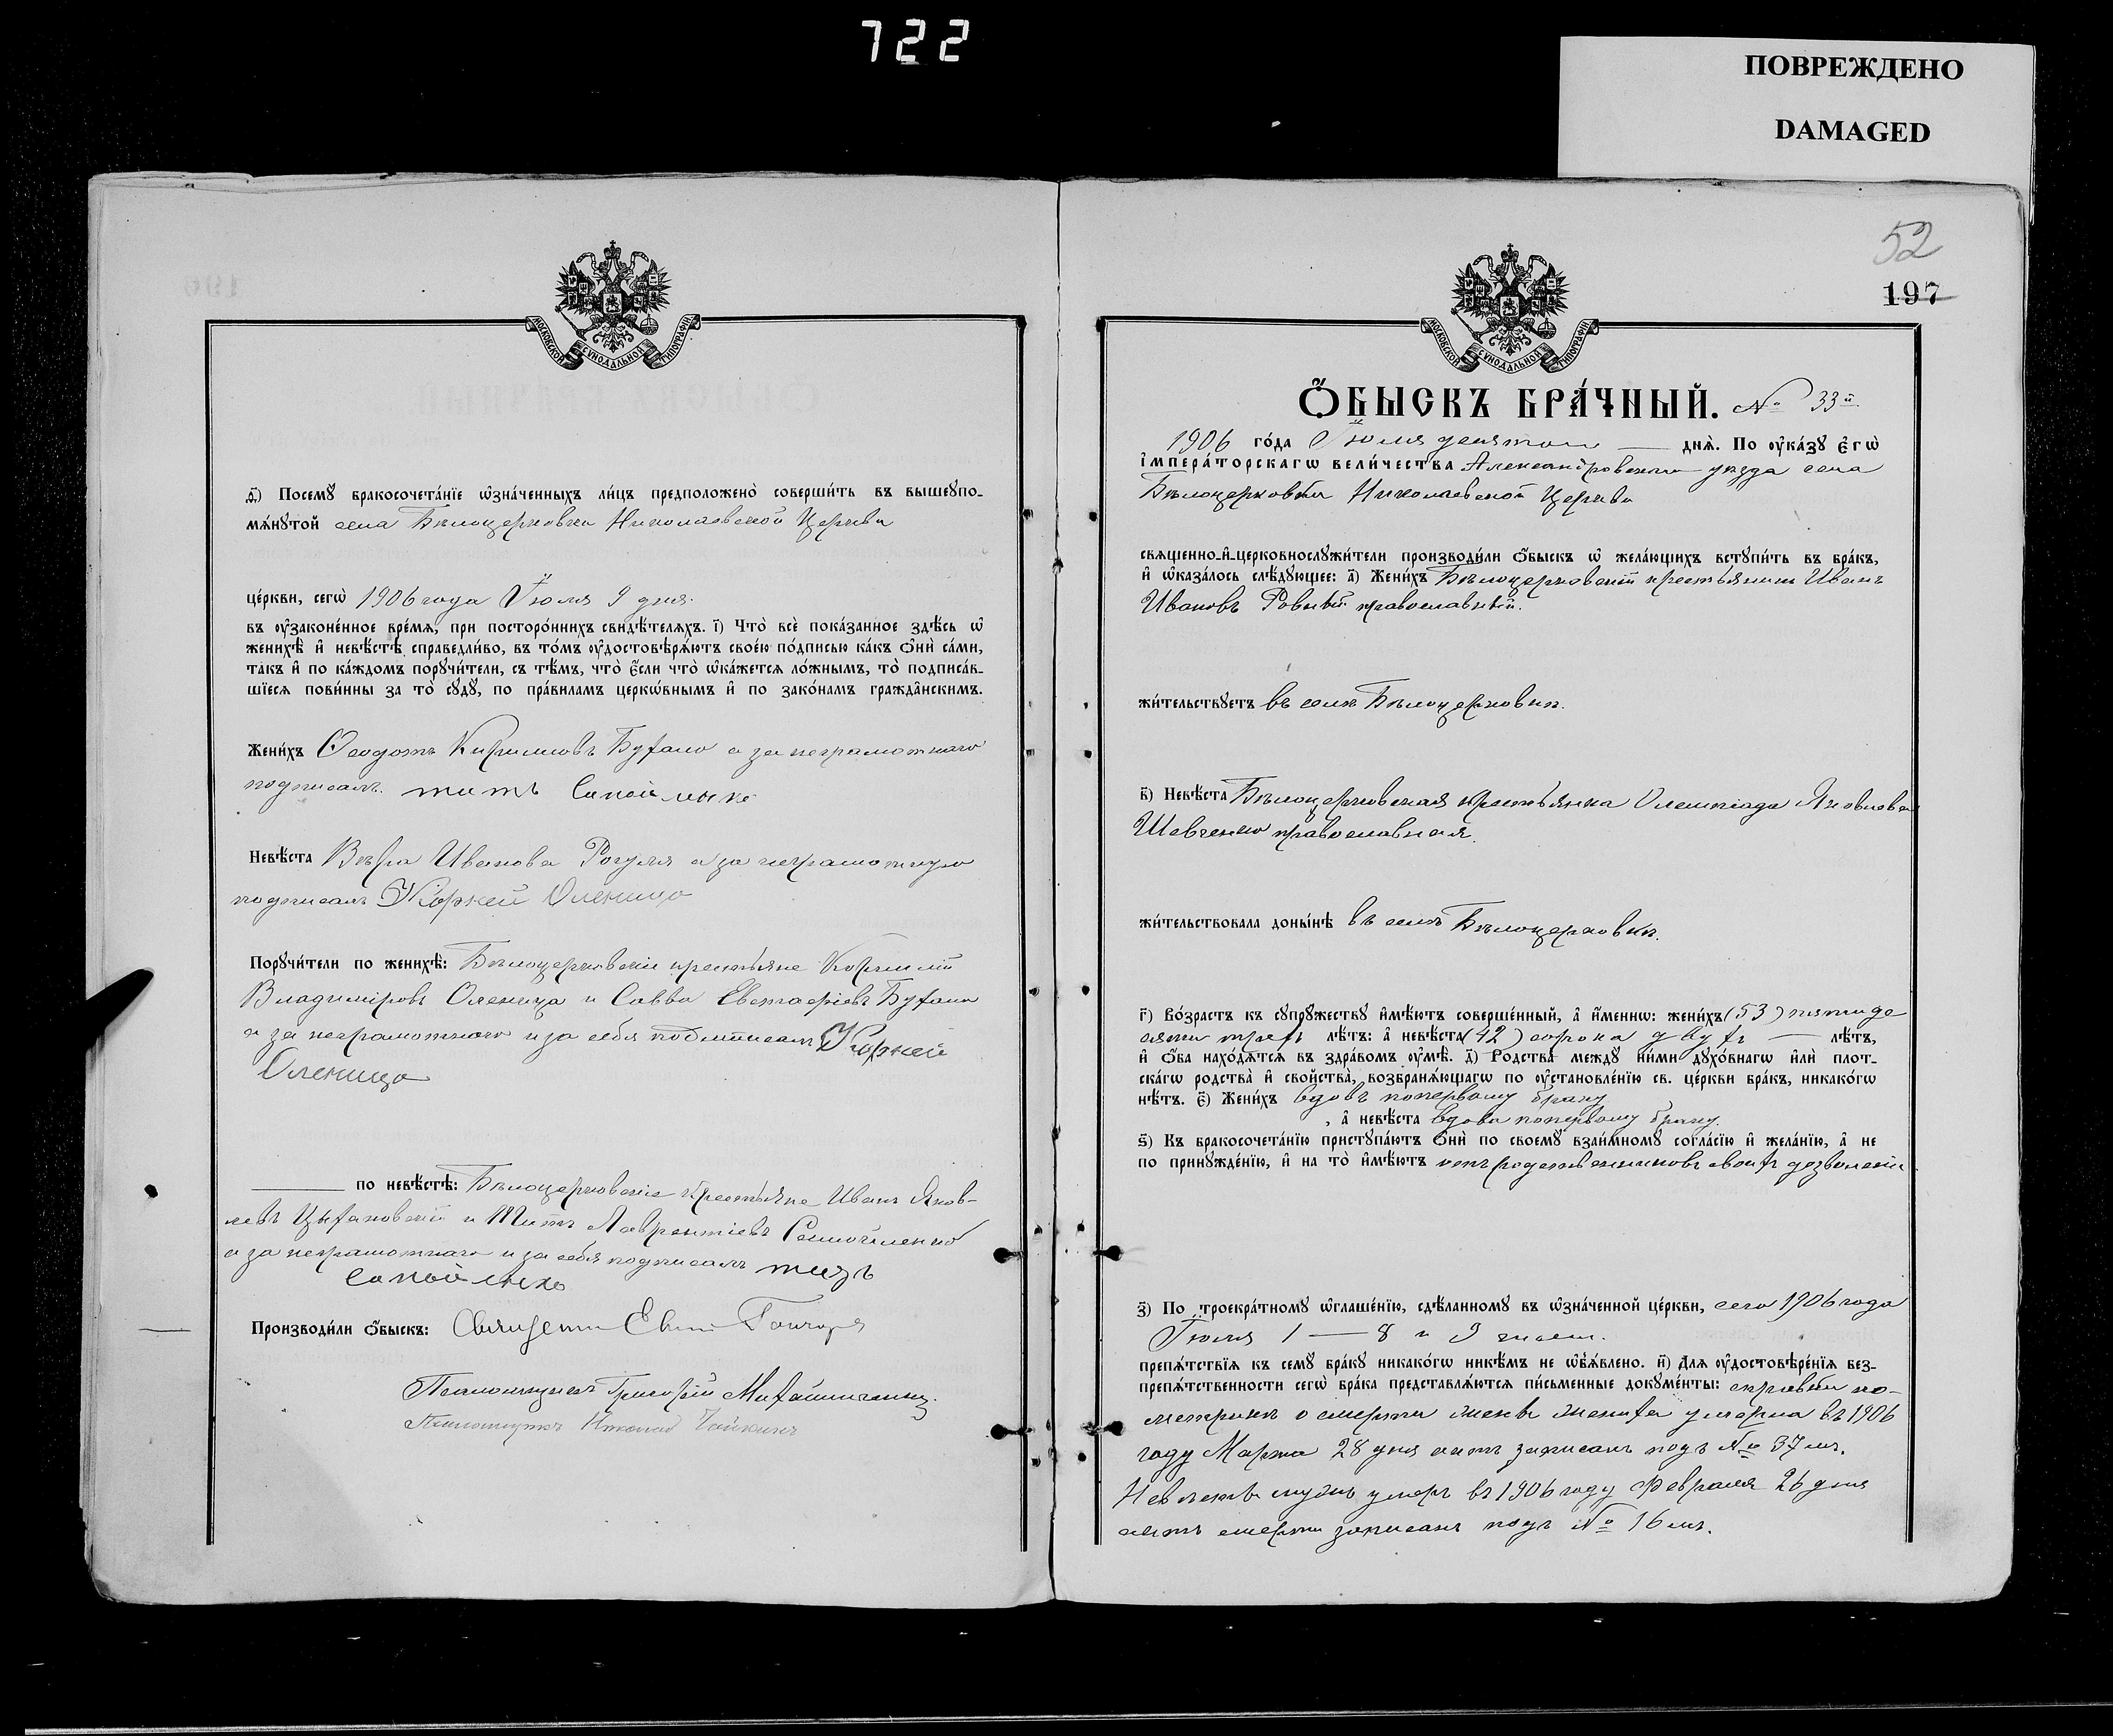 722
ПОВРЕЖДЕНО
DAMAGED
МОСКОВСКОЙ СѴНОДАЛЬНОЙ ТИПОГРАФІИ
ѳ҃) Посемꙋ̀ бракосочета́нїе ѡ҆зна́ченныхъ ли́цъ предположено̀ соверши́ть въ вышеꙋпо-
мѧ́нꙋтой села Бѣлоцерковки Николаевской Церкви
це́ркви, сегѡ̀ 1906 года Іюля 9 дня.
въ ᲂу҆зако́ненное вре́мѧ, при посторо́ннихъ свидѣ́телѧхъ. і҃) Что̀ всѐ пока́занное здѣ́сь ѡ҆
женихѣ̀ и҆ невѣ́стѣ справедли́во, въ то́мъ ᲂу҆достовѣрѧ́ютъ свое́ю по́дписью ка́къ ѻ҆нѝ са́ми,
та́къ и҆ по ка́ждомъ порꙋчи́тели, съ тѣ́мъ, что̀ є҆́сли что̀ ѡ҆ка́жетсѧ ло́жнымъ, то̀ подписа́в-
шїесѧ пови́нны за то̀ сꙋдꙋ̀, по пра́виламъ церкѡ́внымъ и҆ по зако́намъ гражда́нскимъ.
Жени́хъ Ѳеодотъ Кириловъ Бухало а за неграмотнаго
подписалъ титъ Самойленко
Невѣ́ста Вѣра Иванова Рогуля а за неграмотную
подписалъ Корней Оленица
Порꙋчи́тели по женихѣ̀: Бѣлоцерковскіи крестьяне Корнилій
Владиміровъ Оленица и Савва Евстафіевъ Бухало
а за неграмотного и за себя подписалъ Корней
Оленица
по невѣ́стѣ: Бѣлоцерковскіе крестьяне Иванъ Яков-
левъ Цыхановскій и Титъ Лаврентіевъ Самойленко
а за неграмотнаго и за себя подписалъ титъ
Самойленко
Производи́ли ѻ҆́быскъ: Священникъ Гончаръ
Псаломщикъ Григорій
Псаломщикъ Николай Чайкинъ
52
197
МОСКОВСКОЙ СѴНОДАЛЬНОЙ ТИПОГРАФІИ
Ѻ҆́БЫСКЪ БРА́ЧНЫЙ. № 33й
1906 го́да Іюля девятого днѧ̀. По ᲂу҆ка́зꙋ є҆гѡ̀
і҆мпера́торскагѡ вели́чества Александровскаго уѣзда села
Бѣлоцерковки Николаевской Церкви
свѧще́нно-и҆-церковнослꙋжи́тели производи́ли ѻ҆́быскъ ѡ҆ жела́ющихъ встꙋпи́ть въ бра́къ,
и҆ ѡ҆каза́лось слѣ́дꙋющее: а҃) Жени́хъ Бѣлоцерковскій крестьянинъ Иванъ
Ивановъ Ровный православный.
жи́тельствꙋетъ въ селѣ Бѣлоцерковкѣ.
в҃) Невѣ́ста Бѣлоцерковская крестьянка Олимпіада Яковлева
Шевченко православная.
жи́тельствовала доны́нѣ въ селѣ Бѣлоцерковкѣ.
г҃) Во́зрастъ къ сꙋпрꙋ́жествꙋ и҆мѣ́ютъ соверше́нный, а҆ и҆́меннѡ: жени́хъ (53) пятиде
сяти трехъ лѣ́тъ: а҆ невѣ́ста (42) сорока двухъ лѣ́тъ,
и҆ ѻ҆́ба нахо́дѧтсѧ въ здра́вомъ ᲂу҆мѣ̀. д҃) Родства̀ ме́ждꙋ ни́ми дꙋхо́внагѡ и҆лѝ плот-
ска́гѡ родства̀ и҆ сво́йства̀, возбранѧ́ющагѡ по ᲂу҆становле́нїю св. це́ркви бра́къ, никако́гѡ
нѣ́тъ. є҃) Жени́хъ вдовъ по первому браку
, а҆ невѣ́ста вдова по первому браку.
ѕ҃) Къ бракосочета́нїю пристꙋпа́ютъ ѻ҆нѝ по своемꙋ̀ взаи́мномꙋ согла́сїю и҆ жела́нїю, а҆ не
по принꙋжде́нїю, и҆ на то̀ и҆мѣ́ютъ родственниковъ своихъ дозволеніе
з҃) По троекра́тномꙋ ѡ҆глаше́нїю, сдѣ́ланномꙋ въ ѡ҆зна́ченной це́ркви, сего 1906 года
Іюля 1 — 8 и 9 числ.
препѧ́тствїѧ къ семꙋ̀ бра́кꙋ никако́гѡ никѣ́мъ не ѡ҆б̾ѧ́влено. и҃) Длѧ̀ ᲂу҆достовѣре́нїѧ без-
препѧ́тственности сегѡ̀ бра́ка представлѧ́ютсѧ пи́сьменные докꙋме́нты: справки по
метрикѣ о смерти жены жениха умерла въ 1906
году Марта 28 дня актъ записанъ подъ № 37 мъ.
Невѣсты мужъ умеръ въ 1906 году Февраля 26 дня
актъ смерти записанъ подъ № 16 мъ.